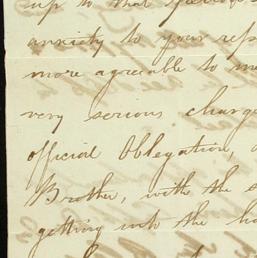 up to that period
anxiety to your rep
more agreeable to me
very serious charge
official Obligation,
Brother, with the s
getting into the ha